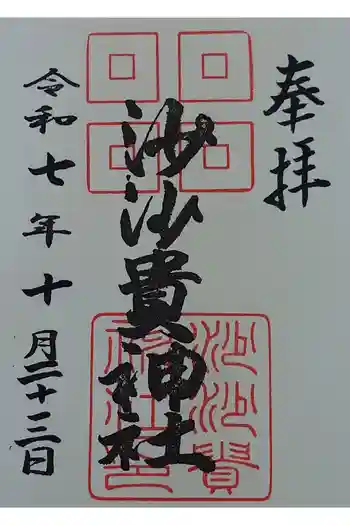 奉拝
沙沙貴神社
令和七年十月二十三日
沙沙貴